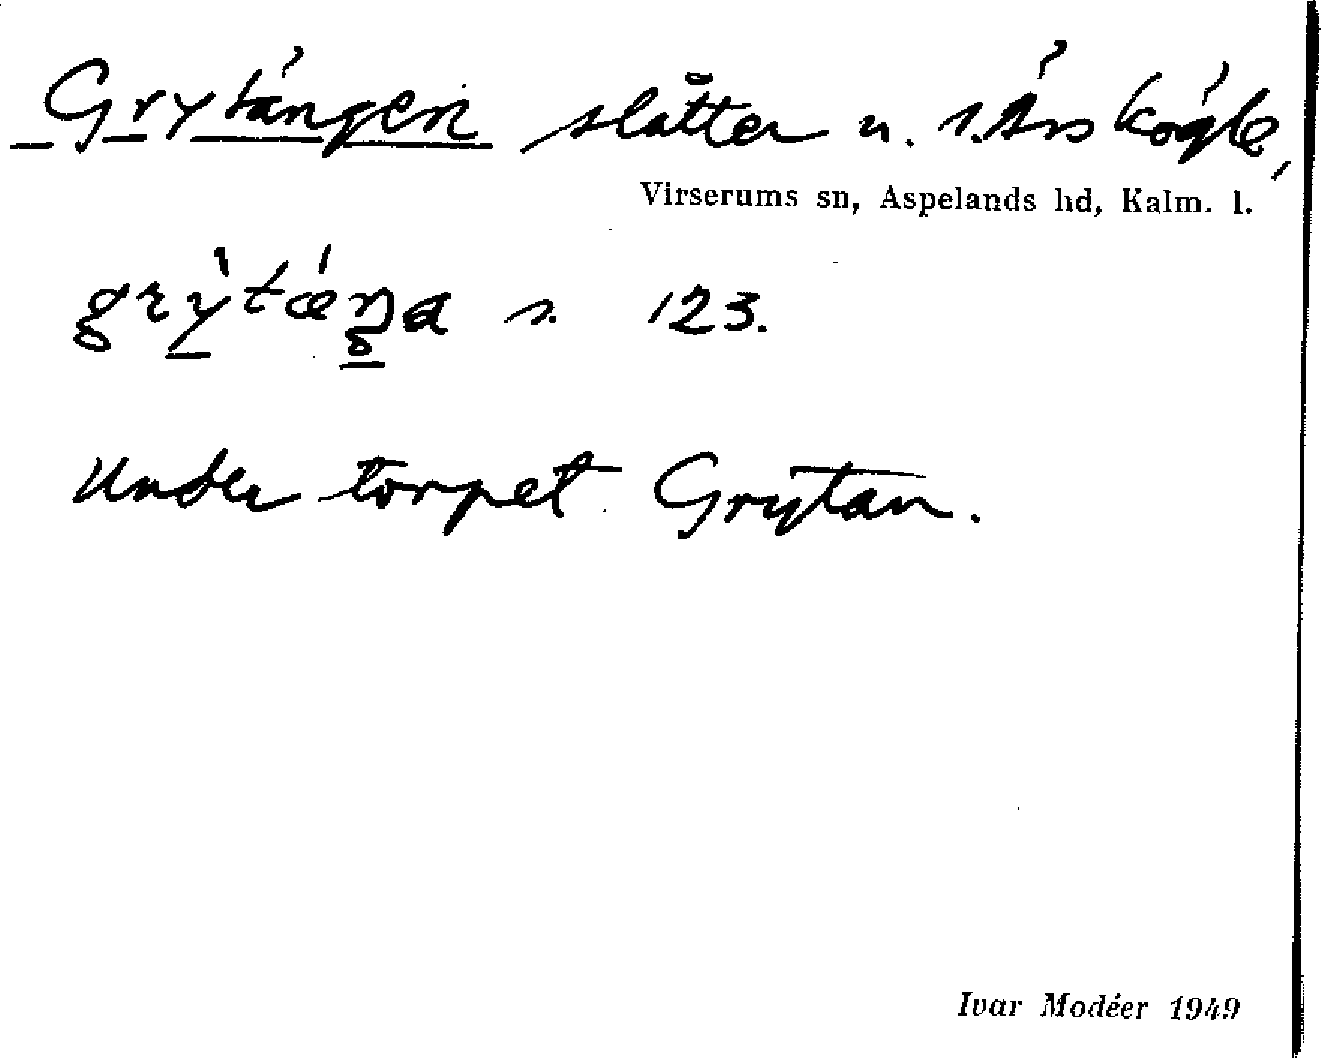 Grytängen slåtter u. s. Årskögle,
Virserums sn, Aspelands hd, Kalm. l.
grỳtǽŋa s. 123.
Under torpet Grytan.
Ivar Modéer 1949